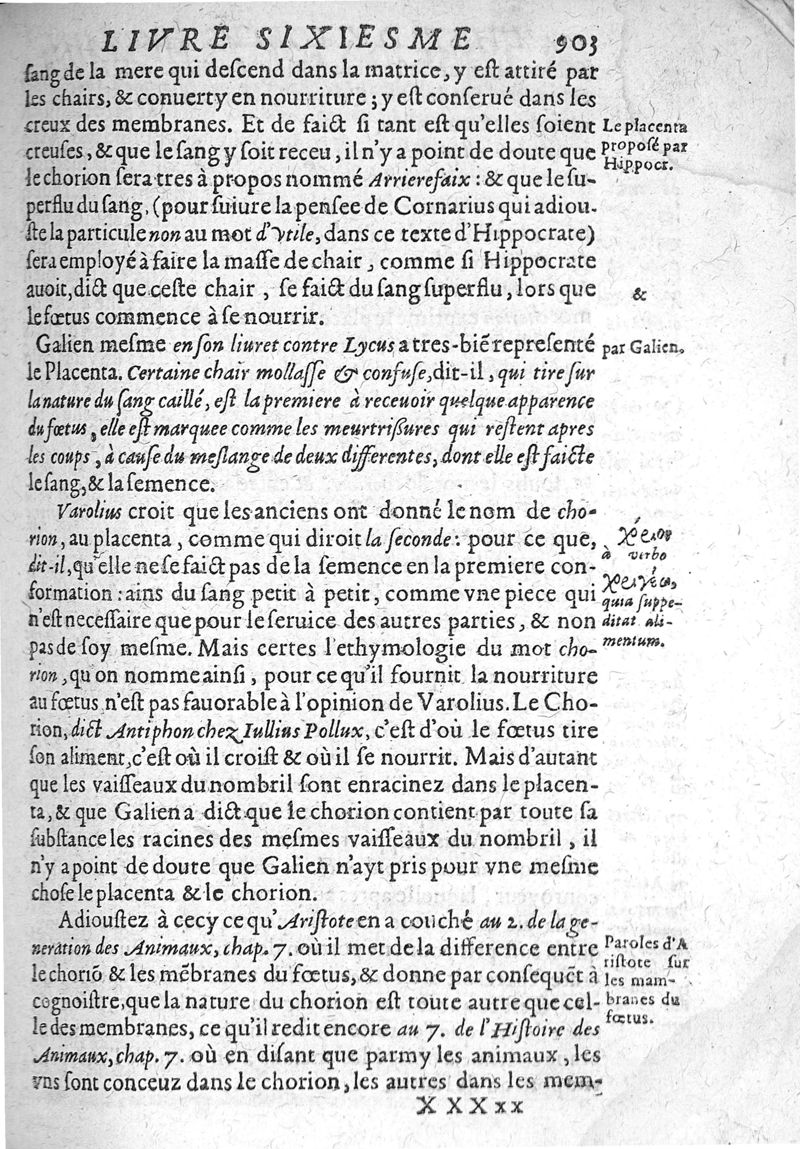 LIVRE SIXIESME 903
sang de la mere qui descend dans la matrice, y est attiré par
les chairs, & conuerty en nourriture ; y est conserué dans les
creux des membranes. Et de faict si tant est qu'elles soient
creuses, & que le sang y soit receu, il n'y a point de doute que
le chorion sera tres à propos nommé Arrierefaix : & que le su-
perflu du sang, (pour suiure la pensee de Cornarius qui adiou-
ste la particule non au mot d'vtile, dans ce texte d'Hippocrate)
sera employé à faire la masse de chair, comme si Hippocrate
auoit, dict que ceste chair, se faict du sang superflu, lors que
le fœtus commence à se nourrir.
Le placenta
proposé par
Hippocr.
&
Galien mesme en son liuret contre Lycus a tres-biẽ representé
le Placenta. Certaine chair mollasse & confuse, dit-il, qui tire sur
la nature du sang caillé, est la premiere à receuoir quelque apparence
du fœtus, elle est marquee comme les meurtrissures qui restent apres
les coups, à cause du meslange de deux differentes, dont elle est faicte
le sang, & la semence.
par Galien,
Varolius croit que les anciens ont donné le nom de cho-
rion, au placenta, comme qui diroit la seconde : pour ce que,
dit-il, qu'elle ne se faict pas de la semence en la premiere con-
formation : ains du sang petit à petit, comme vne piece qui
n'est necessaire que pour le seruice des autres parties, & non
pas de soy mesme. Mais certes l'ethymologie du mot cho-
rion, qu'on nomme ainsi, pour ce qu'il fournit la nourriture
au fœtus n'est pas fauorable à l'opinion de Varolius. Le Cho-
rion, dict Antiphon chez Iullius Pollux, c'est d'où le fœtus tire
son aliment, c'est où il croist & où il se nourrit. Mais d'autant
que les vaisseaux du nombril sont enracinez dans le placen-
ta, & que Galien a dict que le chorion contient par toute sa
substance les racines des mesmes vaisseaux du nombril, il
n'y a point de doute que Galien n'ayt pris pour vne mesme
chose le placenta & le chorion.
à verbo
quia suppe-
ditat ali-
mentum.
Adioustez à cecy ce qu'Aristote en a couché au 2. de la ge-
neration des Animaux, chap. 7. où il met de la difference entre
le choriõ & les mẽbranes du fœtus, & donne par consequẽt à
cognoistre, que la nature du chorion est toute autre que cel-
le des membranes, ce qu'il redit encore au 7. de l'Histoire des
Animaux, chap. 7. où en disant que parmy les animaux, les
vns sont conceuz dans le chorion, les autres dans les mem-
Paroles d'A
ristote sur
les mam-
branes du
fœtus.
XXXxx